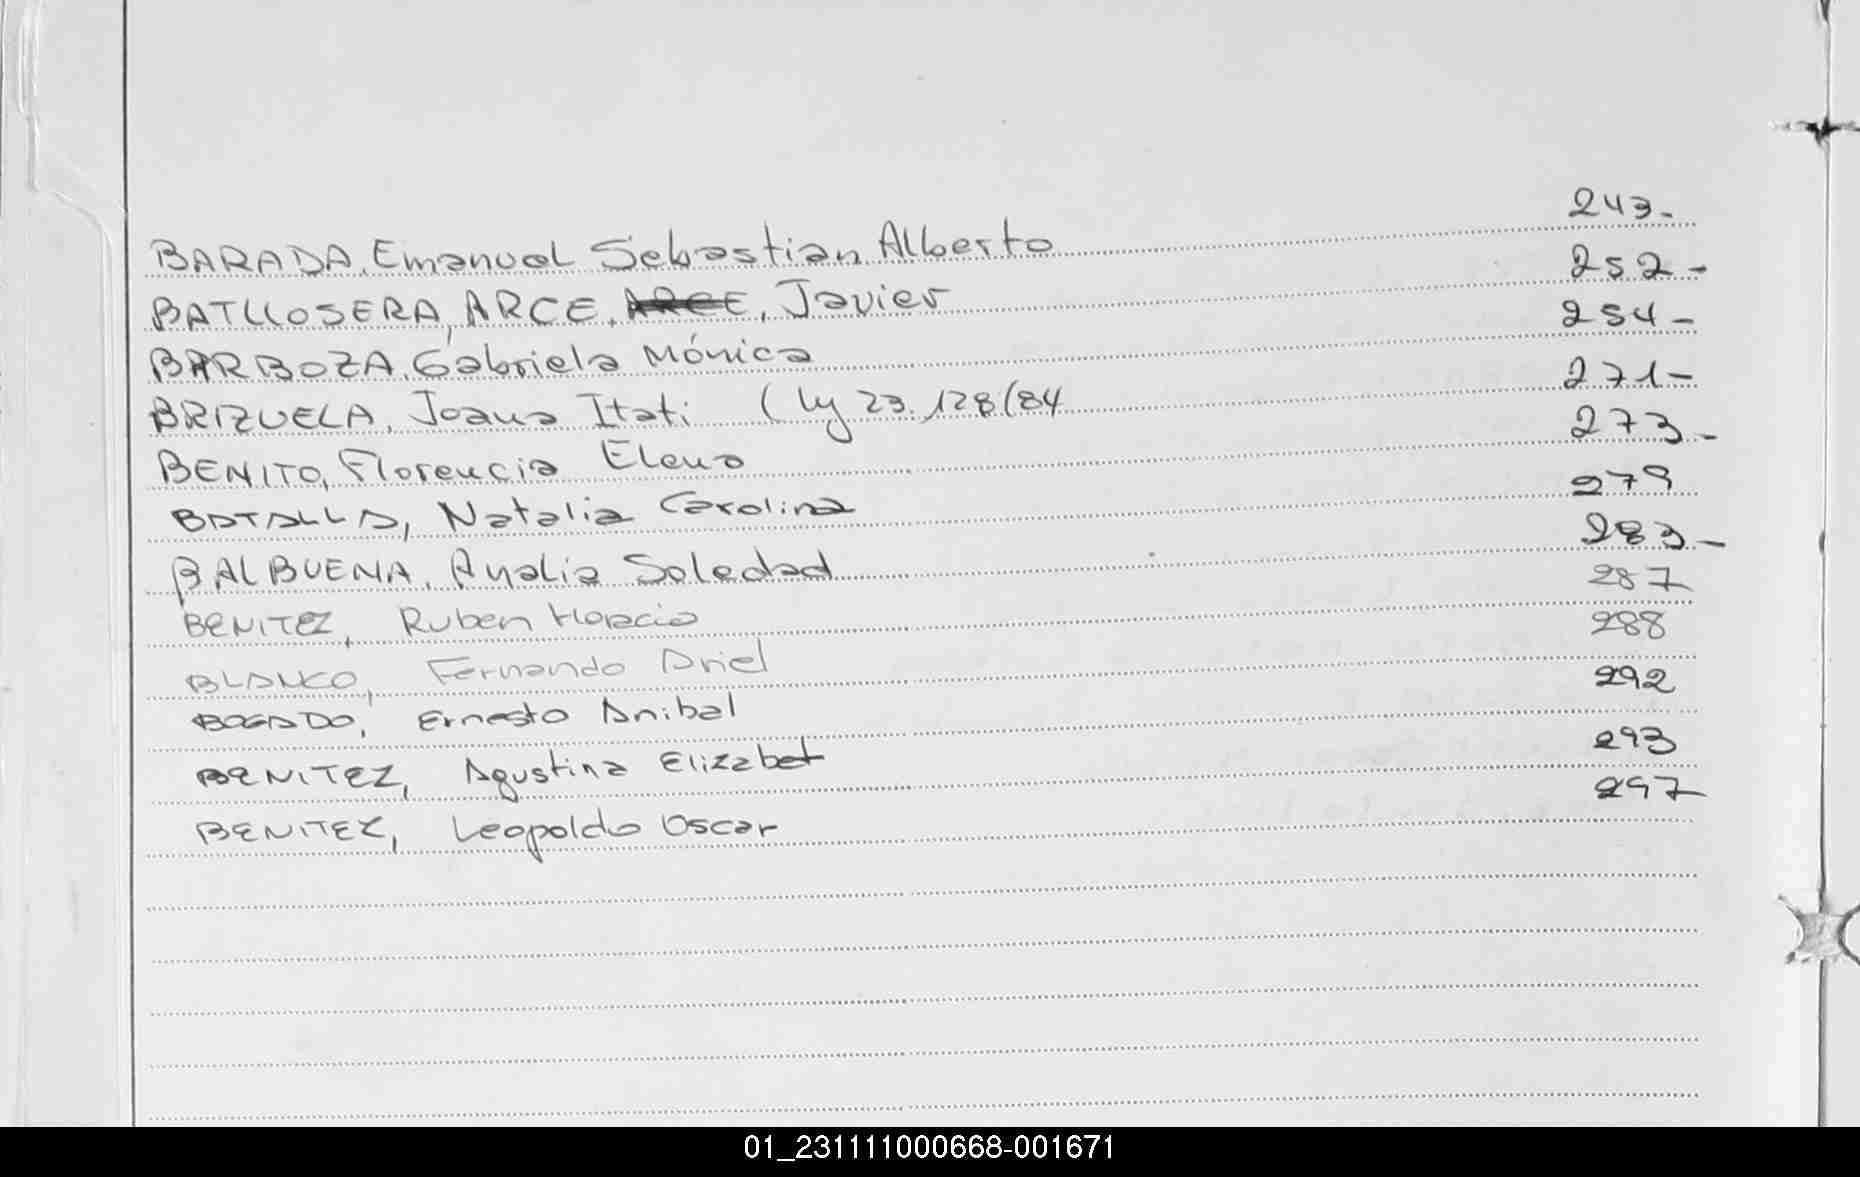 BARADA, Emanuel Sebastian Alberto 243-
BATLLOSERA, ARCE, ARCE, Javier 252-
BARBOZA, Gabriela Mónica 254-
BRIZUELA, Joana Itati (ly 23.128/84 271-
BENITO, Florencia Elena 273-
BATALLA, Natalia Carolina 279
BALBUENA, Analia Soledad 283-
BENITEZ, Ruben Horacio 287
BLANCO, Fernando Ariel 288
BOGADO, Ernesto Anibal 292
BENITEZ, Agustina Elizabet 293
BENITEZ, Leopoldo Oscar 297
01_231111000668-001671